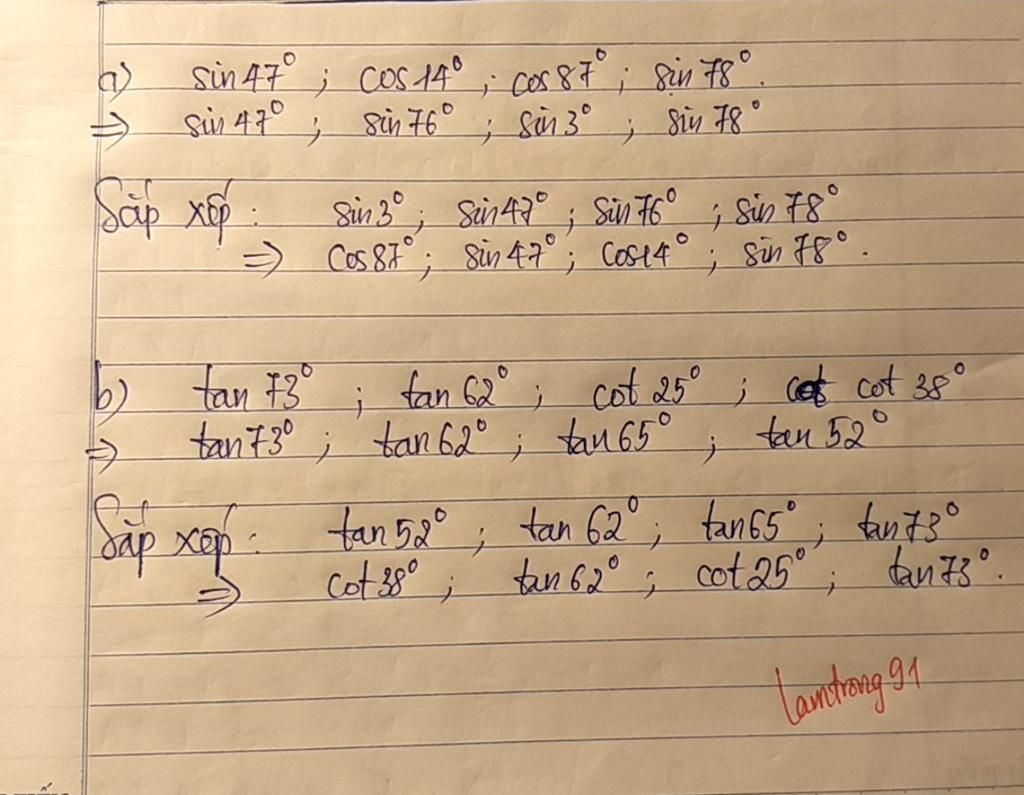 a) sin 47° ; cos 14° ; cos 87° ; sin 78°.
=> sin 47° ; sin 76° ; sin 3° ; sin 78°
Sắp xếp : sin 3° ; sin 47° ; sin 76° ; sin 78°
=> cos 87° ; sin 47° ; cos 14° ; sin 78°.
b) tan 73° ; tan 62° ; cot 25° ; cot 38°
=> tan 73° ; tan 62° ; tan 65° ; tan 52°
Sắp xếp : tan 52° ; tan 62° ; tan 65° ; tan 73°
=> cot 38° ; tan 62° ; cot 25° ; tan 73°.
lamtrong91